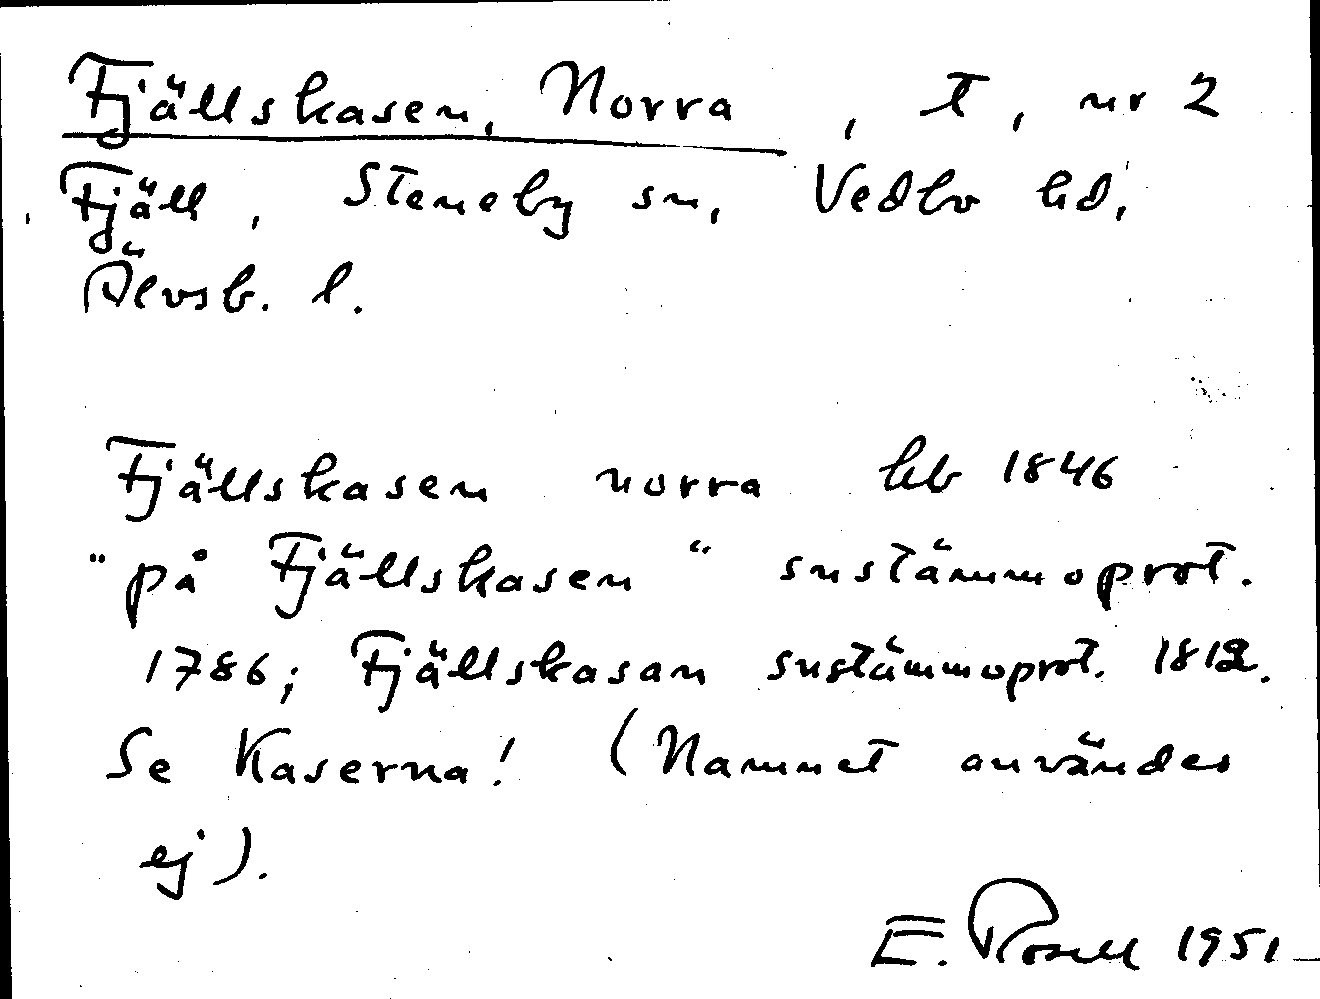 Fjällskasen, Norra, T, nr 2
Fjäll, Steneby sn, Vedbo hd,
Älvsb. l.
Fjällskasen norra hb 1846
"på Fjällskasen" snstämmoprot.
1786; Fjällskasan snstämmoprot. 1812.
Se Kaserna! (Namnet användes
ej).
E. Rosell 1951